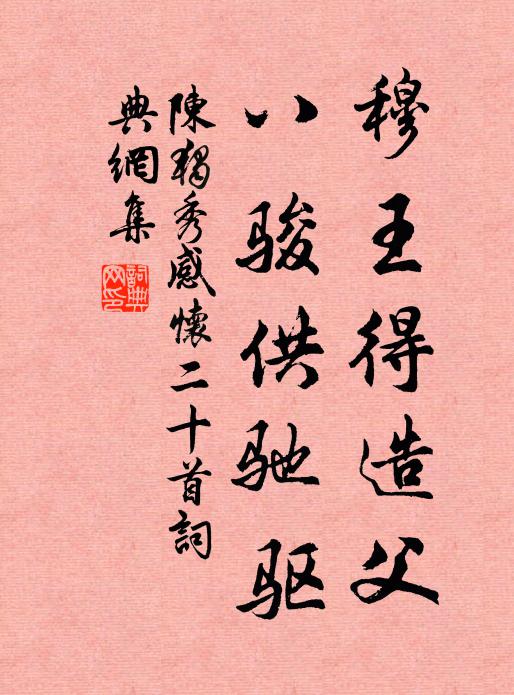 穆王得造父
八骏供驰驱
陳獨秀感懷二十首詞
典網集
詞典網印